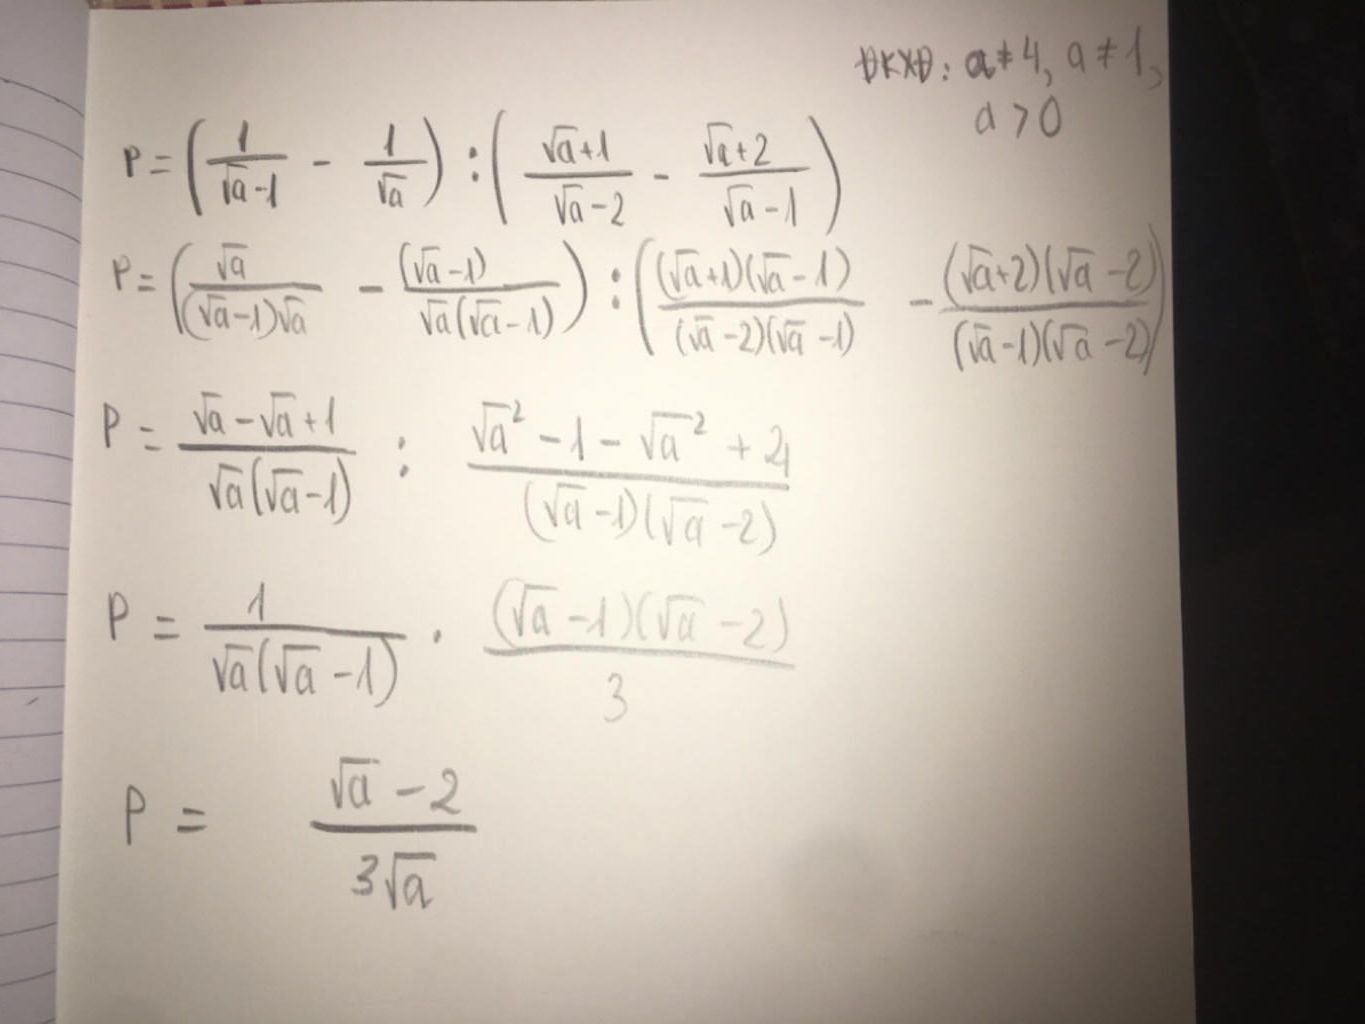 ĐKXĐ: a ≠ 4, a ≠ 1,
a > 0
P = (1/(√a-1) - 1/√a) : ((√a+1)/(√a-2) - (√a+2)/(√a-1))
P = (√a/((√a-1)√a) - (√a-1)/(√a(√a-1))) : ((√a+1)(√a-1)/((√a-2)(√a-1)) - (√a+2)(√a-2)/((√a-1)(√a-2)))
P = (√a-√a+1)/(√a(√a-1)) : (√a² - 1 - √a² + 4)/((√a-1)(√a-2))
P = 1/(√a(√a-1)) · (√a-1)(√a-2)/3
P = (√a-2)/(3√a)